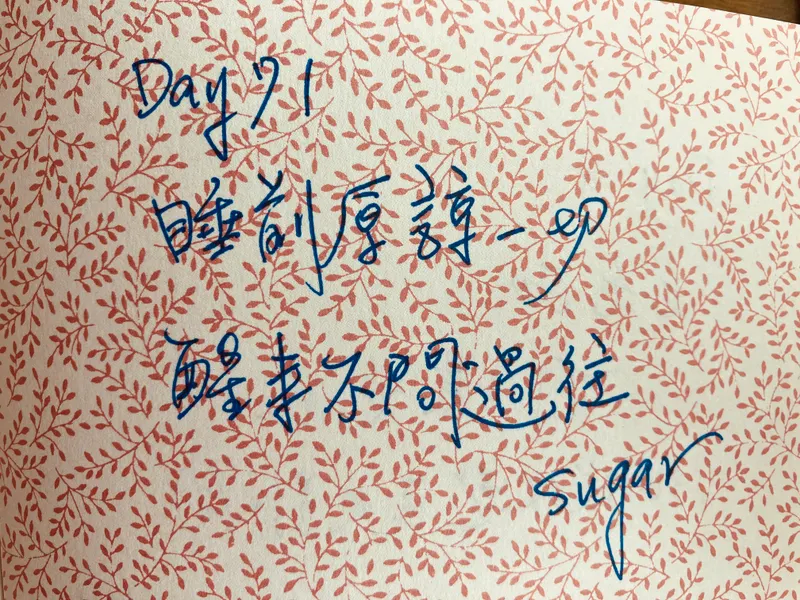 Day 71
睡前原諒一切
醒來不問過往
sugar